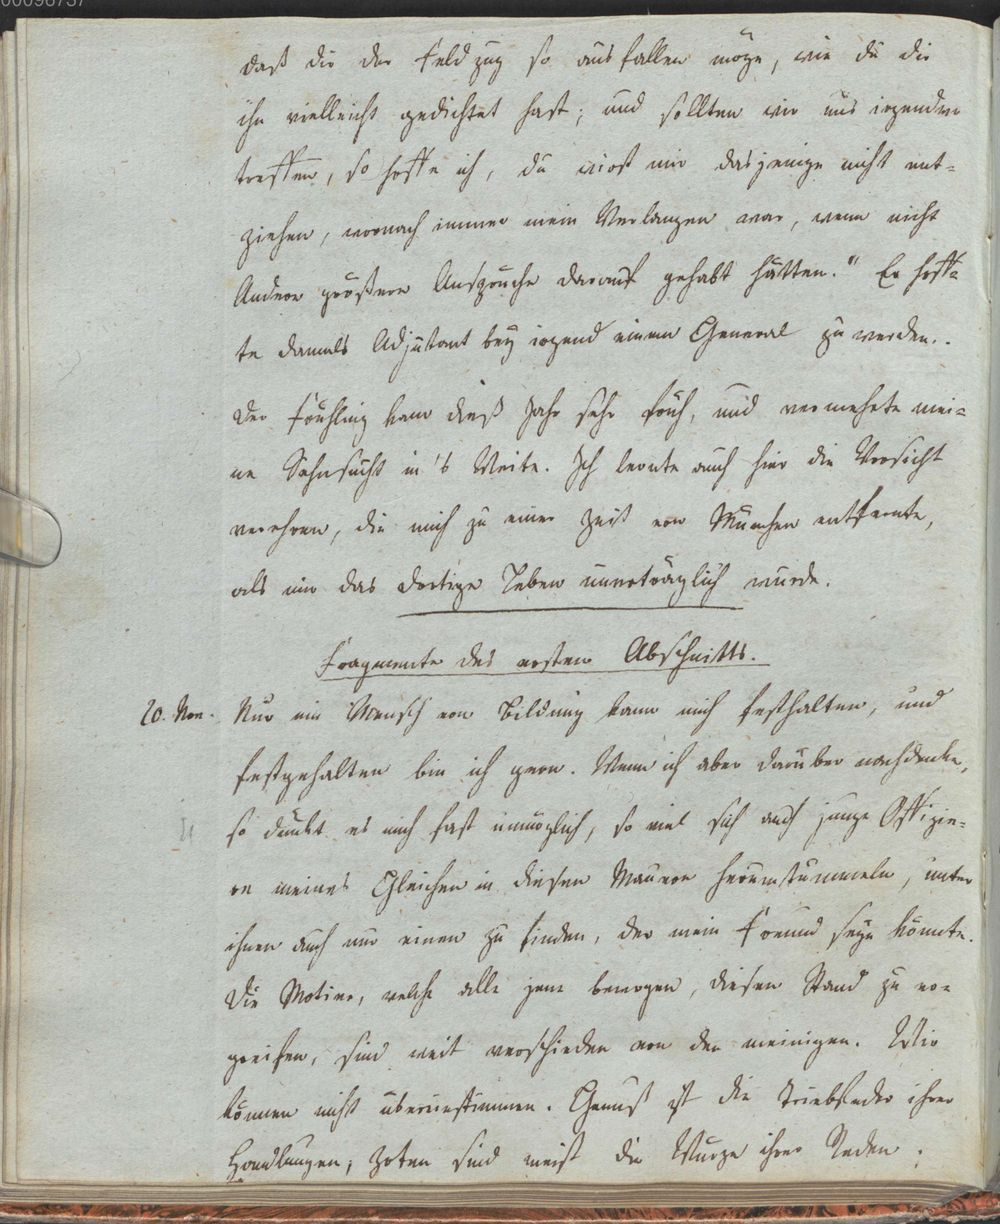 00096737
daß dir der Feldzug so ausfallen möge, wie du dir
ihn vielleicht gedichtet hast; und sollten wir uns irgendwo
treffen, so hoffe ich, du wirst mir dasjenige nicht ent-
ziehen, wornach immer mein Verlangen war, wenn nicht
Andere größere Ansprüche darauf gehabt hätten." Er hoff-
te damals Adjutant bey irgend einem General zu werden..
Der Frühling kam dieß Jahr sehr früh, und vermehrte mei-
ne Sehnsucht in's Weite. Ich lernte auch hier die Vorsicht
verehren, die mich zu einer Zeit von München entfernte,
als mir das dortige Leben unerträglich wurde.
Fragmente des ersten Abschnitts.
20. Nov. Nur ein Mensch von Bildung kann mich festhalten, und
festgehalten bin ich gern. Wenn ich aber darüber nachdenke,
so dünkt es mich fast unmöglich, so viel sich auch junge Offizie-
re meines Gleichen in diesen Mauern herumtummeln, unter
ihnen auch nur einen zu finden, der mein Freund seyn könnte.
Die Motive, welche alle jene bewogen, diesen Stand zu er-
greifen, sind weit verschieden von den meinigen. Wir
können nicht übereinstimmen. Genuß ist die Triebfeder ihrer
Handlungen; Zoten sind meist die Würze ihrer Reden.